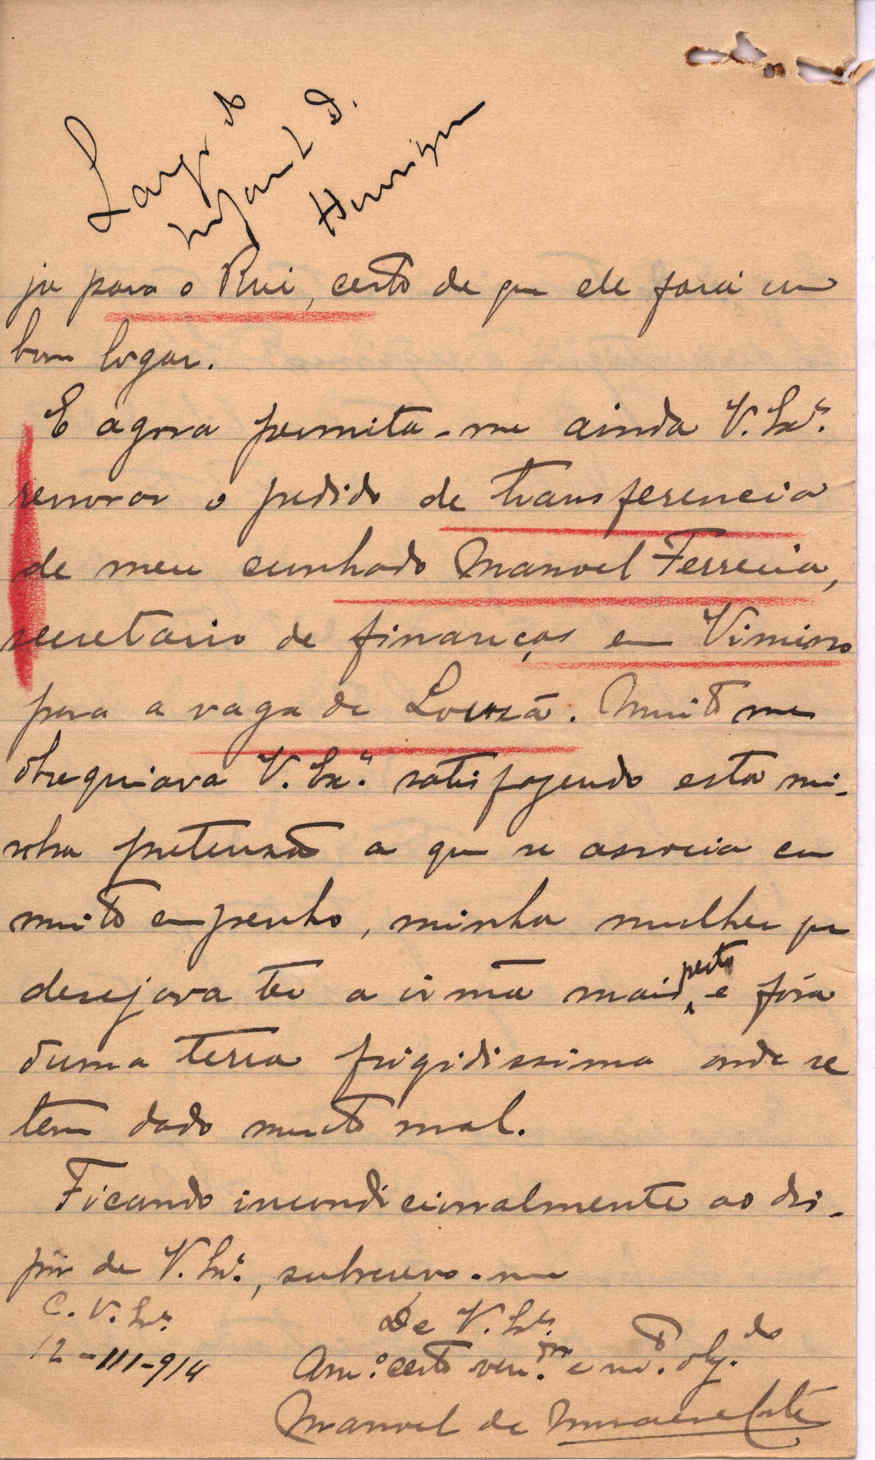 Largo do
Infante D.
Henrique
ja para o Rui, certo de que ele fará um
bom logar.
E agora permita-me ainda V. Exª.
renovar o pedido de transferencia
de meu cunhado Manoel Ferreira,
secretario de finanças em Vimioso
para a vaga de Louzã. Muito me
obsequiava V. Exª. satisfazendo esta mi-
nha pretensão a que se associa com
muito empenho, minha mulher que
desejava ter a irmã mais perto e fóra
duma terra frigidissima onde se
tem dado muito mal.
Ficando incondicionalmente ao dis-
pôr de V. Exª., subscrevo-me
C. V. Exª.
12-III-914
De V. Exª.
Amº. certo ven.dor e mto. obg.do
Manoel de